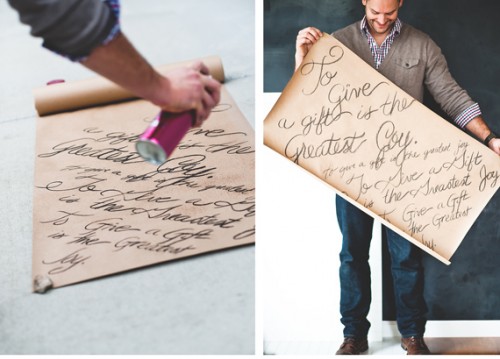 a gift is the
Greatest Joy.
To give a gift is the greatest joy
To Give a Gift
is the Greatest Joy
To Give a Gift
is the Greatest
Joy.
To
Give
a gift is the
Greatest Joy.
To give a gift is the greatest joy
To Give a Gift
is the Greatest Joy
To Give a Gift
is the Greatest
Joy.